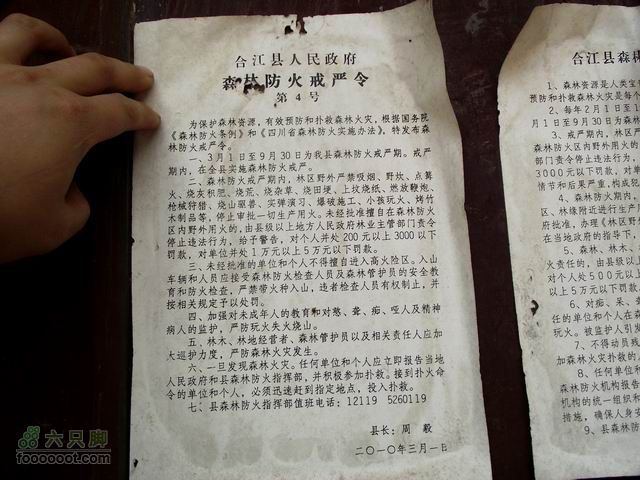 合江县人民政府
森林防火戒严令
第4号
为保护森林资源，有效预防和扑救森林火灾，根据国务院
《森林防火条例》和《四川省森林防火实施办法》，特发布森
林防火戒严令。
一、3月1日至9月30日为我县森林防火戒严期。戒严
期内，在全县实施森林防火戒严。
二、森林防火戒严期内，林区野外严禁吸烟、野炊、点篝
火、烧灰积肥、烧荒、烧杂草、烧田埂、上坟烧纸、燃放鞭炮、
枪械狩猎、烧山驱兽、实弹演习、爆破施工、小孩玩火、烤竹
木制品等，停止审批一切生产用火。未经批准擅自在森林防火
区内野外用火的，由县级以上地方人民政府林业主管部门责令
停止违法行为，给予警告，对个人并处200元以上3000以下
罚款，对单位并处1万元以上5万元以下罚款。
三、未经批准的单位和个人不得擅自进入高火险区。入山
车辆和人员应接受森林防火检查人员及森林管护员的安全教
育和防火检查，严禁带火种入山，违者检查人员有权制止，并
按相关规定予以处罚。
四、加强对未成年人的教育和对憨、聋、痴、哑人及精神
病人的监护，严防玩火失火烧山。
五、林木、林地经营者、森林管护员以及相关责任人应加
大巡护力度，严防森林火灾发生。
六、一旦发现森林火灾。任何单位和个人应立即报告当地
人民政府和县森林防火指挥部，并积极参加扑救。接到扑火命
令的单位和个人，必须迅速赶到指定地点，投入扑救。
七、县森林防火指挥部值班电话：12119 5260119
县长：周 毅
二〇一〇年三月一日
合江县森林
1、森林资源是人类宝
预防和扑救森林火灾是每个
2、每年2月1日至
月1日至9月30日为
3、戒严期内，林
森林防火区内野外用火的
部门责令停止违法行为，
3000元以下罚款，对
情节和后果严重，构成犯
4、森林防火期内，
区、林缘附近进行生产用
府批准，办理《林区野外
在当地政府的指导下，
5、森林、林木、
火责任的，由县级以上
对个人处500元以上
以上5万元以下罚款。
6、对痴、呆、
任的单位和个人在林
玩火。被监护人引发
7、不得动员残
加森林火灾扑救的人
8、任何单位和
森林防火机构报告
机构的统一组织和
措施，确保人身安
9、县森林防火
六只脚
foooooot.com